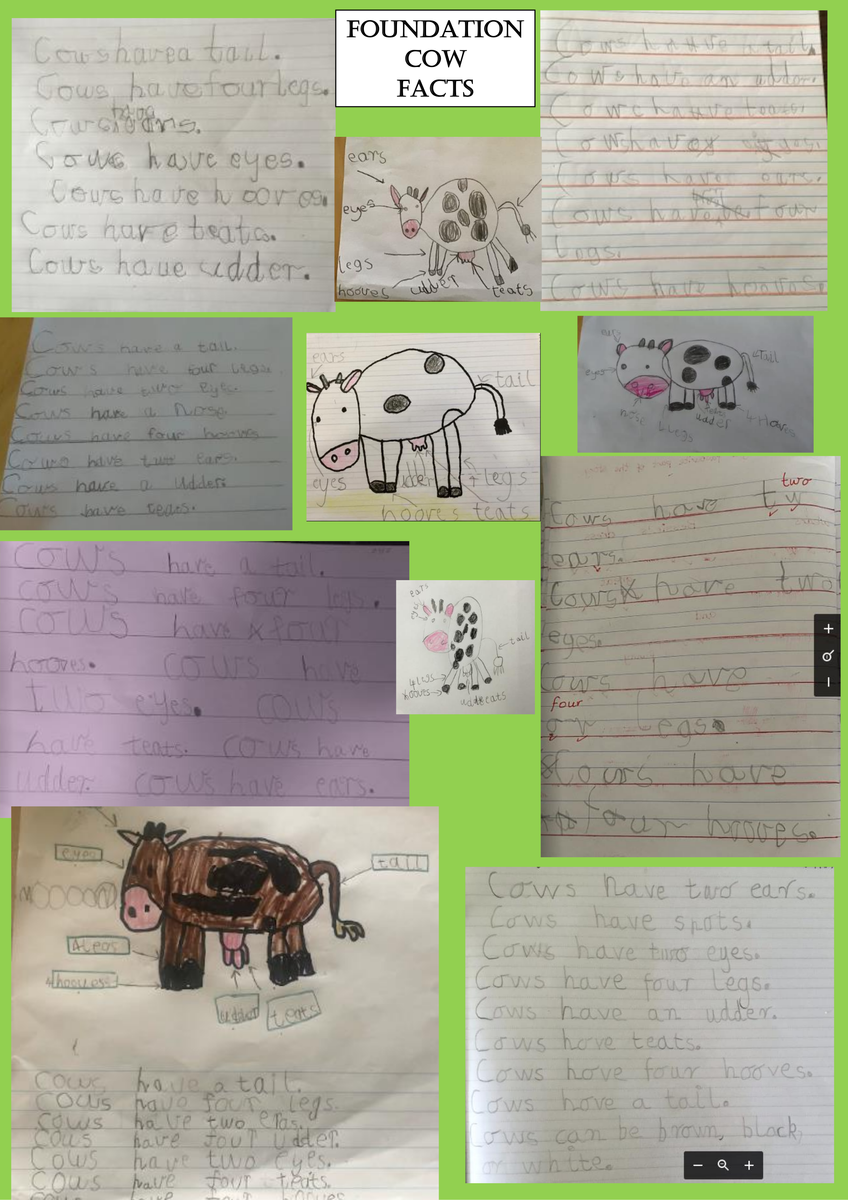 FOUNDATION
COW
FACTS
Cows have a tail.
Cows have four legs.
Cows ears.
Cows have eyes.
Cows have hooves.
Cows have teats.
Cows have udder.
ears
eyes
legs
hooves udder teats
Cows hauve tail.
Cows have an udder.
Cows hauve teats.
Cows have
Cows have ears.
Cows have four
Legs.
Cows have hooves.
Cows have a tail.
Cows have four legs.
Cows have two eyes.
Cows have a Nose
Cows have four hooves
Cows have two ears.
Cows have a udders
Cows have teats.
ears
tail
eyes udder 4 legs
hooves teats
ears
eyes
Tail
nose 4 Legs udder 4 Hooves
two
Cows have tw
ears.
Cows x have two
eyes.
Cows have
four
or Legs.
Cows have
four hooves.
Cows have a tail.
cows have four legs.
cows have x four
hooves. cows have
two eyes. cows
have teats. cows have
udder. cows have ears.
ears
eyes
tail
hooves
eyes
tail
MOOOOOM
4 legs
4 hooves
udder teats
Cows have a tail.
cows have four legs.
cows have two eras.
cows have four udder.
Cows have two eyes.
cows have four teats.
cows have four hooves
Cows have two ears.
Cows have spots.
Cows have two eyes.
Cows have four legs.
Cows have an udder.
Cows hove teats.
Cows hove four hooves.
Cows hove a tail.
Cows can be brown, black,
or white.